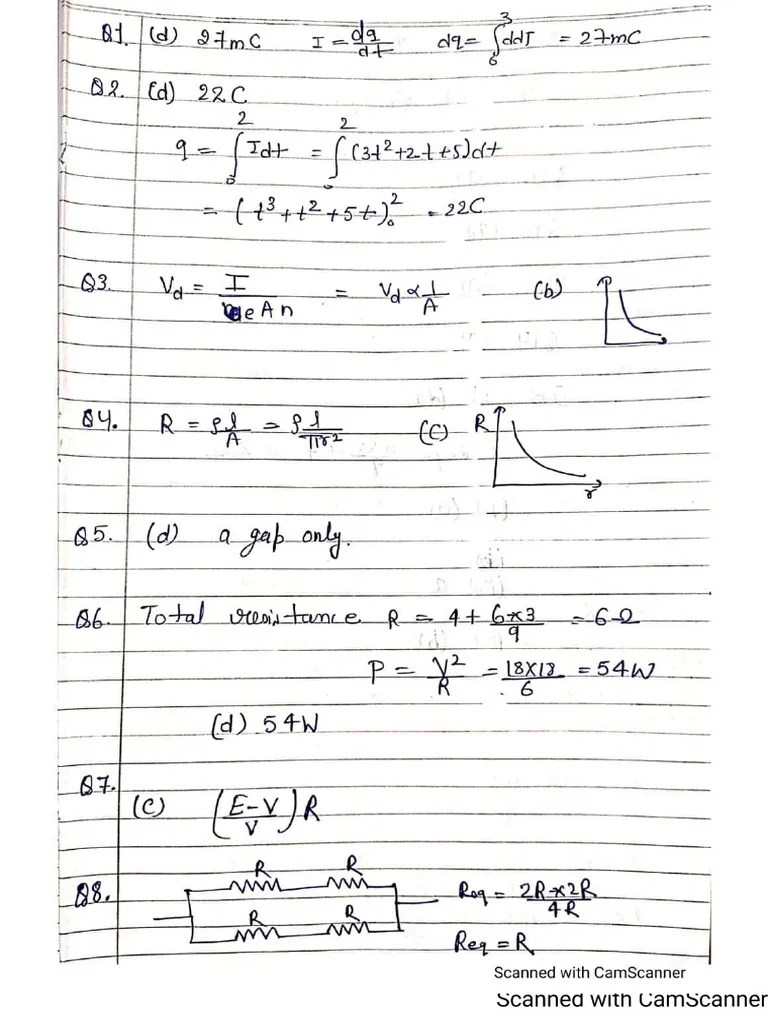 Q1. (d) 27mC I = dq/dt dq = ∫₀³ ddI = 27mC
Q2. (d) 22C
q = ∫₀² Idt = ∫₀² (3t²+2t+5)dt
= (t³+t²+5t)₀² = 22C
Q3. Vd = I/eAn = Vd ∝ 1/A (b)
Q4. R = ρl/A = ρl/πr² (C) R r
Q5. (d) a gap only.
Q6. Total resistance R = 4 + 6×3/9 = 6Ω
P = V²/R = 18×18/6 = 54W
(d) 54W
Q7.
(C) (E-V/V)R
R R
Q8. Req = 2R×2R/4R
R R
Req = R
Scanned with CamScanner
Scanned with CamScanner